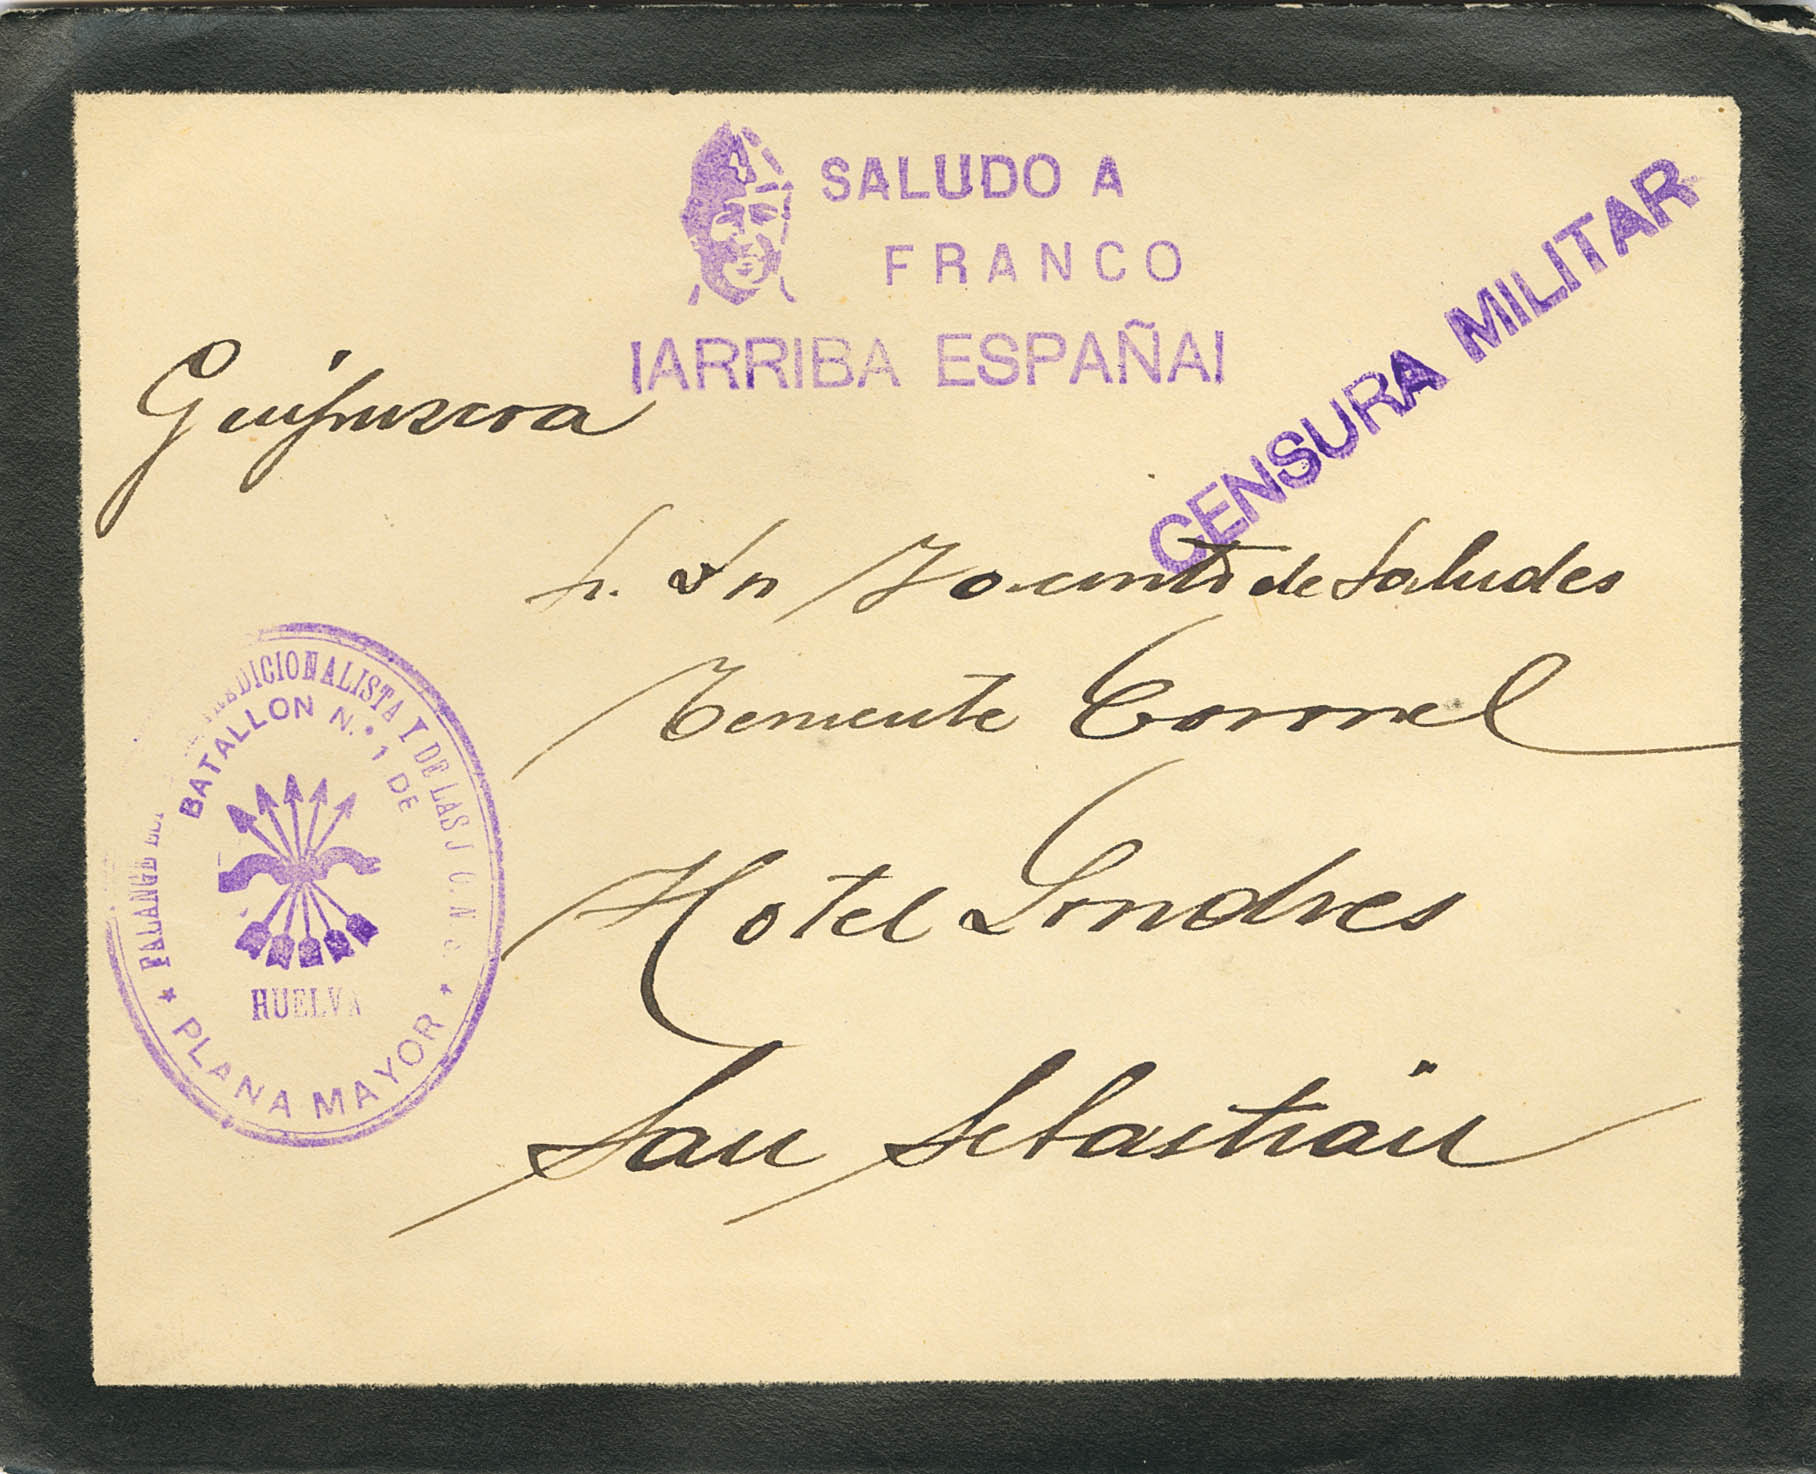 SALUDO A
FRANCO
¡ARRIBA ESPAÑA!
CENSURA MILITAR
Guipuzcoa
Sr. Dn de Saludes
Teniente Coronel
Hotel Londres
San Sebastián
FALANGE TRADICIONALISTA Y DE LAS J. O. N. S.
BATALLON N.º 1 DE
HUELVA
★ PLANA MAYOR ★